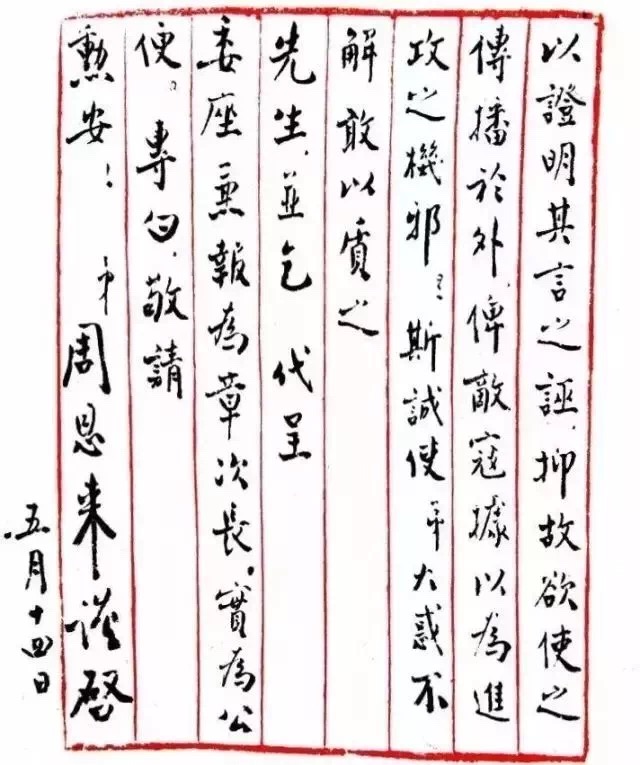 以證明其言之誣，抑故欲使之
傳播於外，俾敵寇據以為進
攻之機邪？斯誠使弟大惑不
解，敢以質之
先生，並乞 代呈
委座。並報為章次長，實為公
便。專此，敬請
勳安！ 弟 周恩來 謹啓
五月十四日